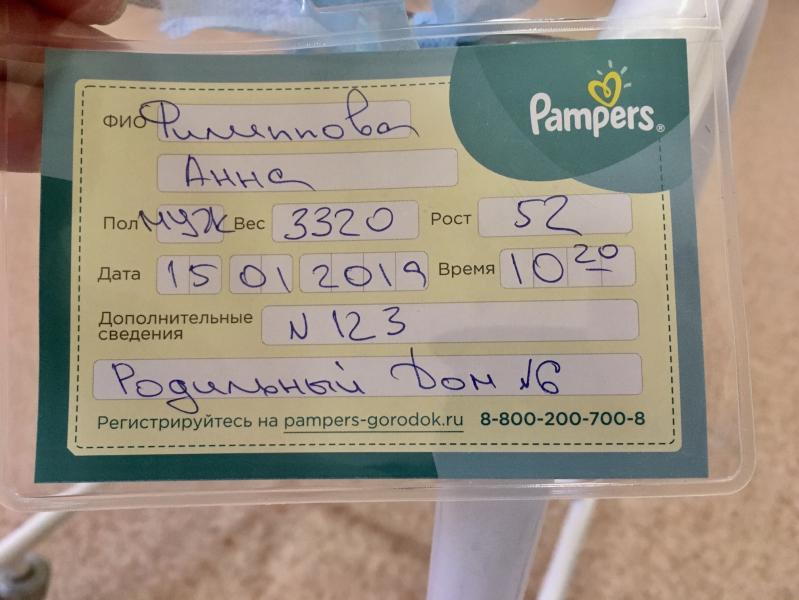 Pampers®
ФИО Филиппова
Анна
Пол муж Вес 3320 Рост 52
Дата 15 01 2019 Время 10 20
Дополнительные сведения N 123
Родильный Дом №6
Регистрируйтесь на pampers-gorodok.ru 8-800-200-700-8